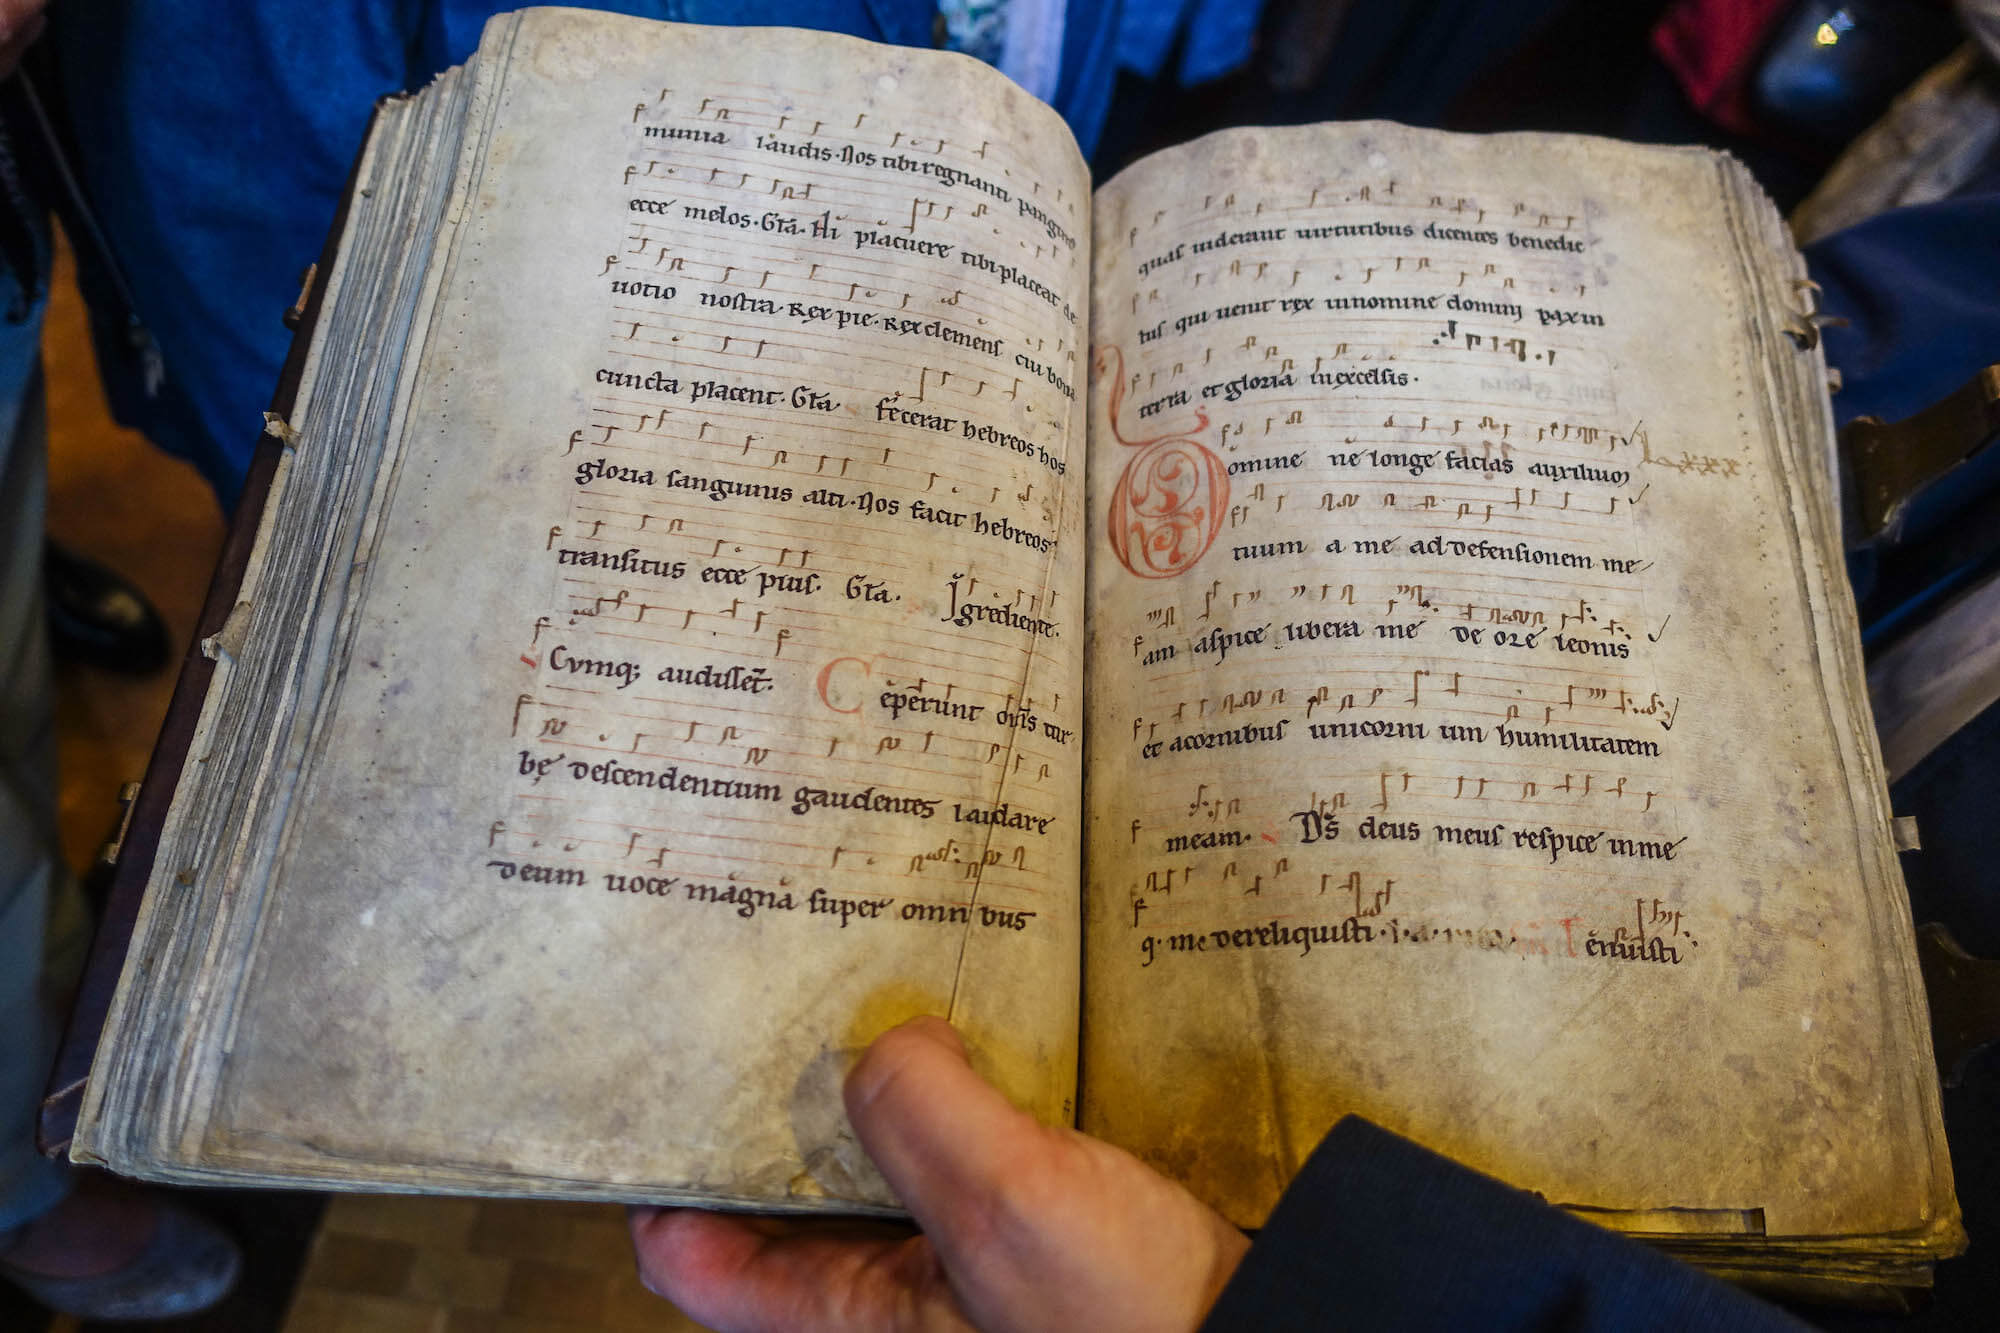 munia laudis. Nos tibi regnanti pangim9
ecce melos. Gła. Hi placuere tibi placeat de
uotio nostra. Rex pie. Rex clemens cui bona
cuncta placent. Gła. fecerat hebreos hos
gloria sanguinis alti. Nos facit hebreos
transitus ecce pius. Gła. Igrediente.
Cvmq; audisset. Ceperunt om̄s tur
bę descendentium gaudentes laudare
deum uoce magna super omnibus
quas uiderant uirtutibus dicentes benedic
tus qui uenit rex in nomine domini pax in
terra et gloria in excelsis.
Domine ne longe facias auxilium
tuum a me ad defensionem me
am aspice libera me de ore leonis
et a cornibus unicornium humilitatem
meam. Ds̄ deus meus respice in me
q. me dereliquisti. Tenuisti